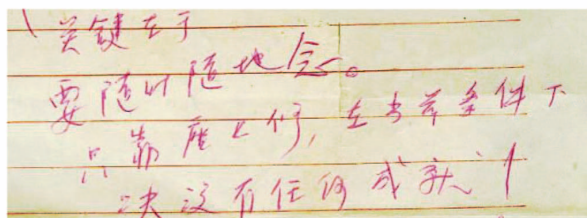 关键在于
要随时随地念。
只靠座上修,在当前条件下
决没有任何成就!